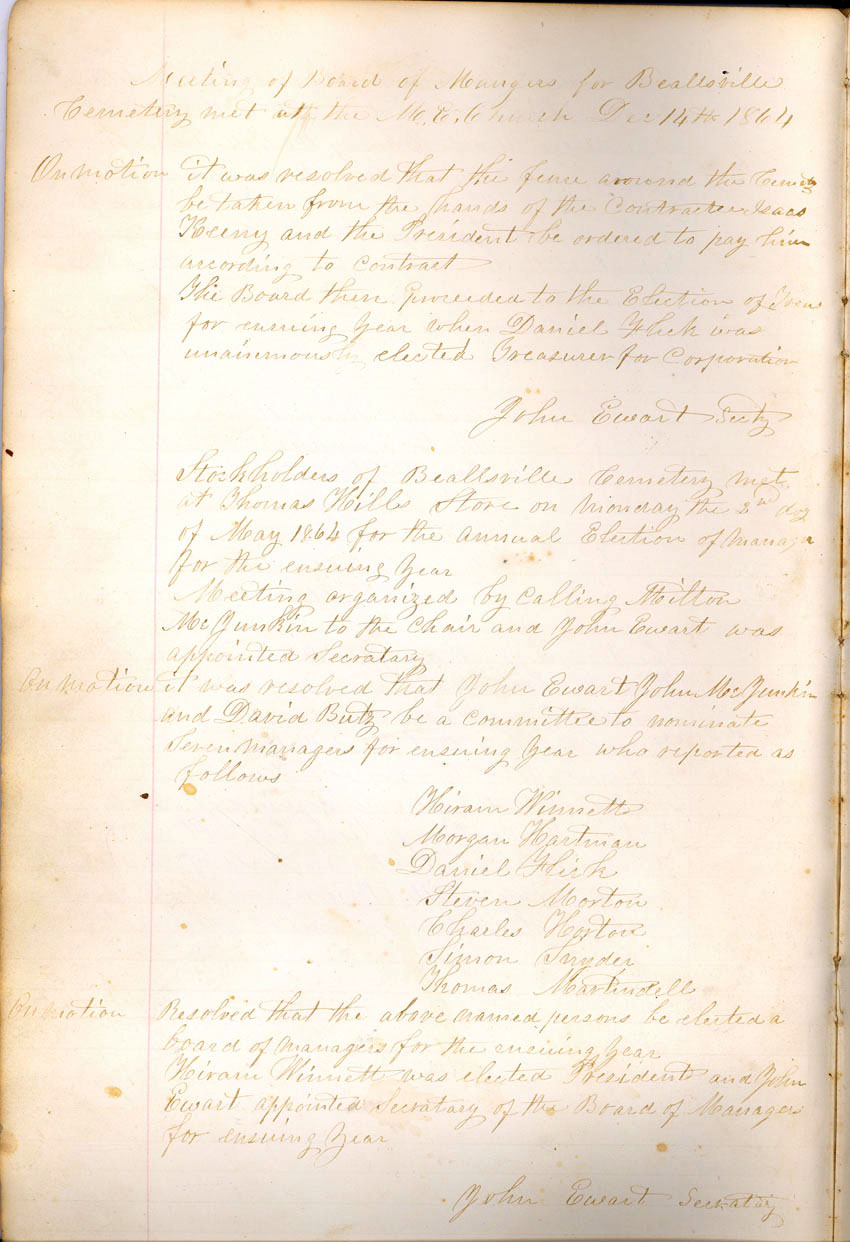 Meeting of Board of Mangers for Beallsville
Cemetery met at the M. E. Church Dec 14th 1864
On motion it was resolved that the fence around the
be taken from the hands of the Contracter Isaas
Keeny and the President be ordered to pay him
acording to contract
The Board then Proceeded to the Election of
for ensuing Year when Daniel Flick was
unainmously elected Treasurer for Corporation
John Ewart Secty
Stockholders of Beallsville Cemetery met
at Thomas Hills Store on Monday the 2nd day
of May 1864 for the annual Election of manager
for the ensuing Year
Meeting organized by calling Milton
McJunkin to the Chair and John Ewart was
appointed Secratary
On motion it was resolved that John Ewart John McJunkin
and David Butz be a committee to nominate
Seven managers for ensuing Year who reported as
follows
Hiram Winnett
Morgan Hartman
Daniel Flick
Steven Morton
Charles Horton
Simon Snyder
Thomas Martindell
On motion Resolved that the above named persons be elected a
board of managers for the ensuing Year
Hiram Winnett was elected President and John
Ewart appointed Secratary of the Board of Managers
for ensuing Year
John Ewart Secratary